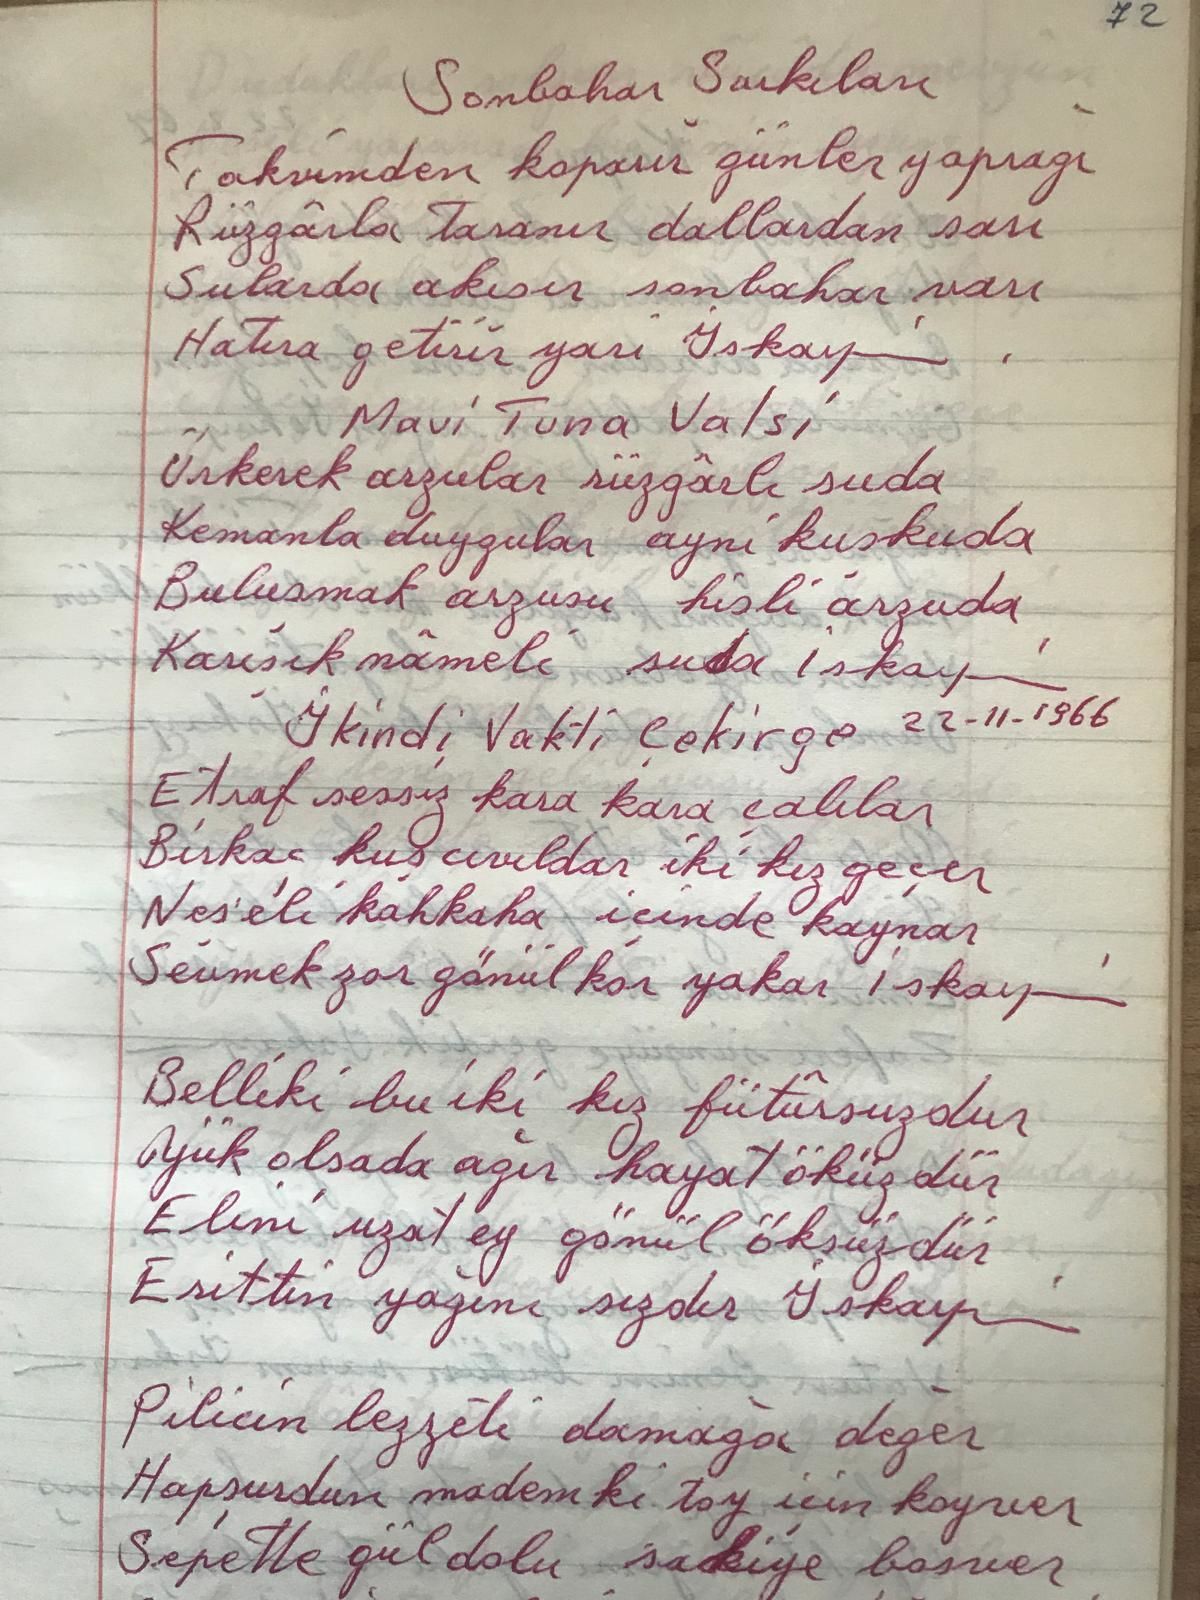 72
Sonbahar Şarkıları
Takvimden koparır günler yaprağı
Rüzgârla taranır dallardan sarı
Sularda akısır sonbahar varı
Hatıra getirir yari İskay
Mavi Tuna Valsi
Ürkerek arzular rüzgârlı suda
Kemanla duygular ayni kuşkuda
Bulusmak arzusu hisli arzuda
Karışık nâmeli suda iskay
İkindi Vakti Çekirge 22-11-1966
Etraf sessiz kara kara çalılar
Birkaç kuş cıvıldar iki kız geçer
Neş'eli kahkaha içinde kaynar
Sevmek zor gönül kör yakar iskay
Belliki bu iki kız fütûrsuzdur
Yük olsada ağır hayat öküzdür
Elini uzat ey gönül öksüzdür
Erittin yağını sızdır İskay
Pilicin lezzeti damağa değer
Hapşurdun mademki toy için koyver
Sepette gül dolu sakiye bosver